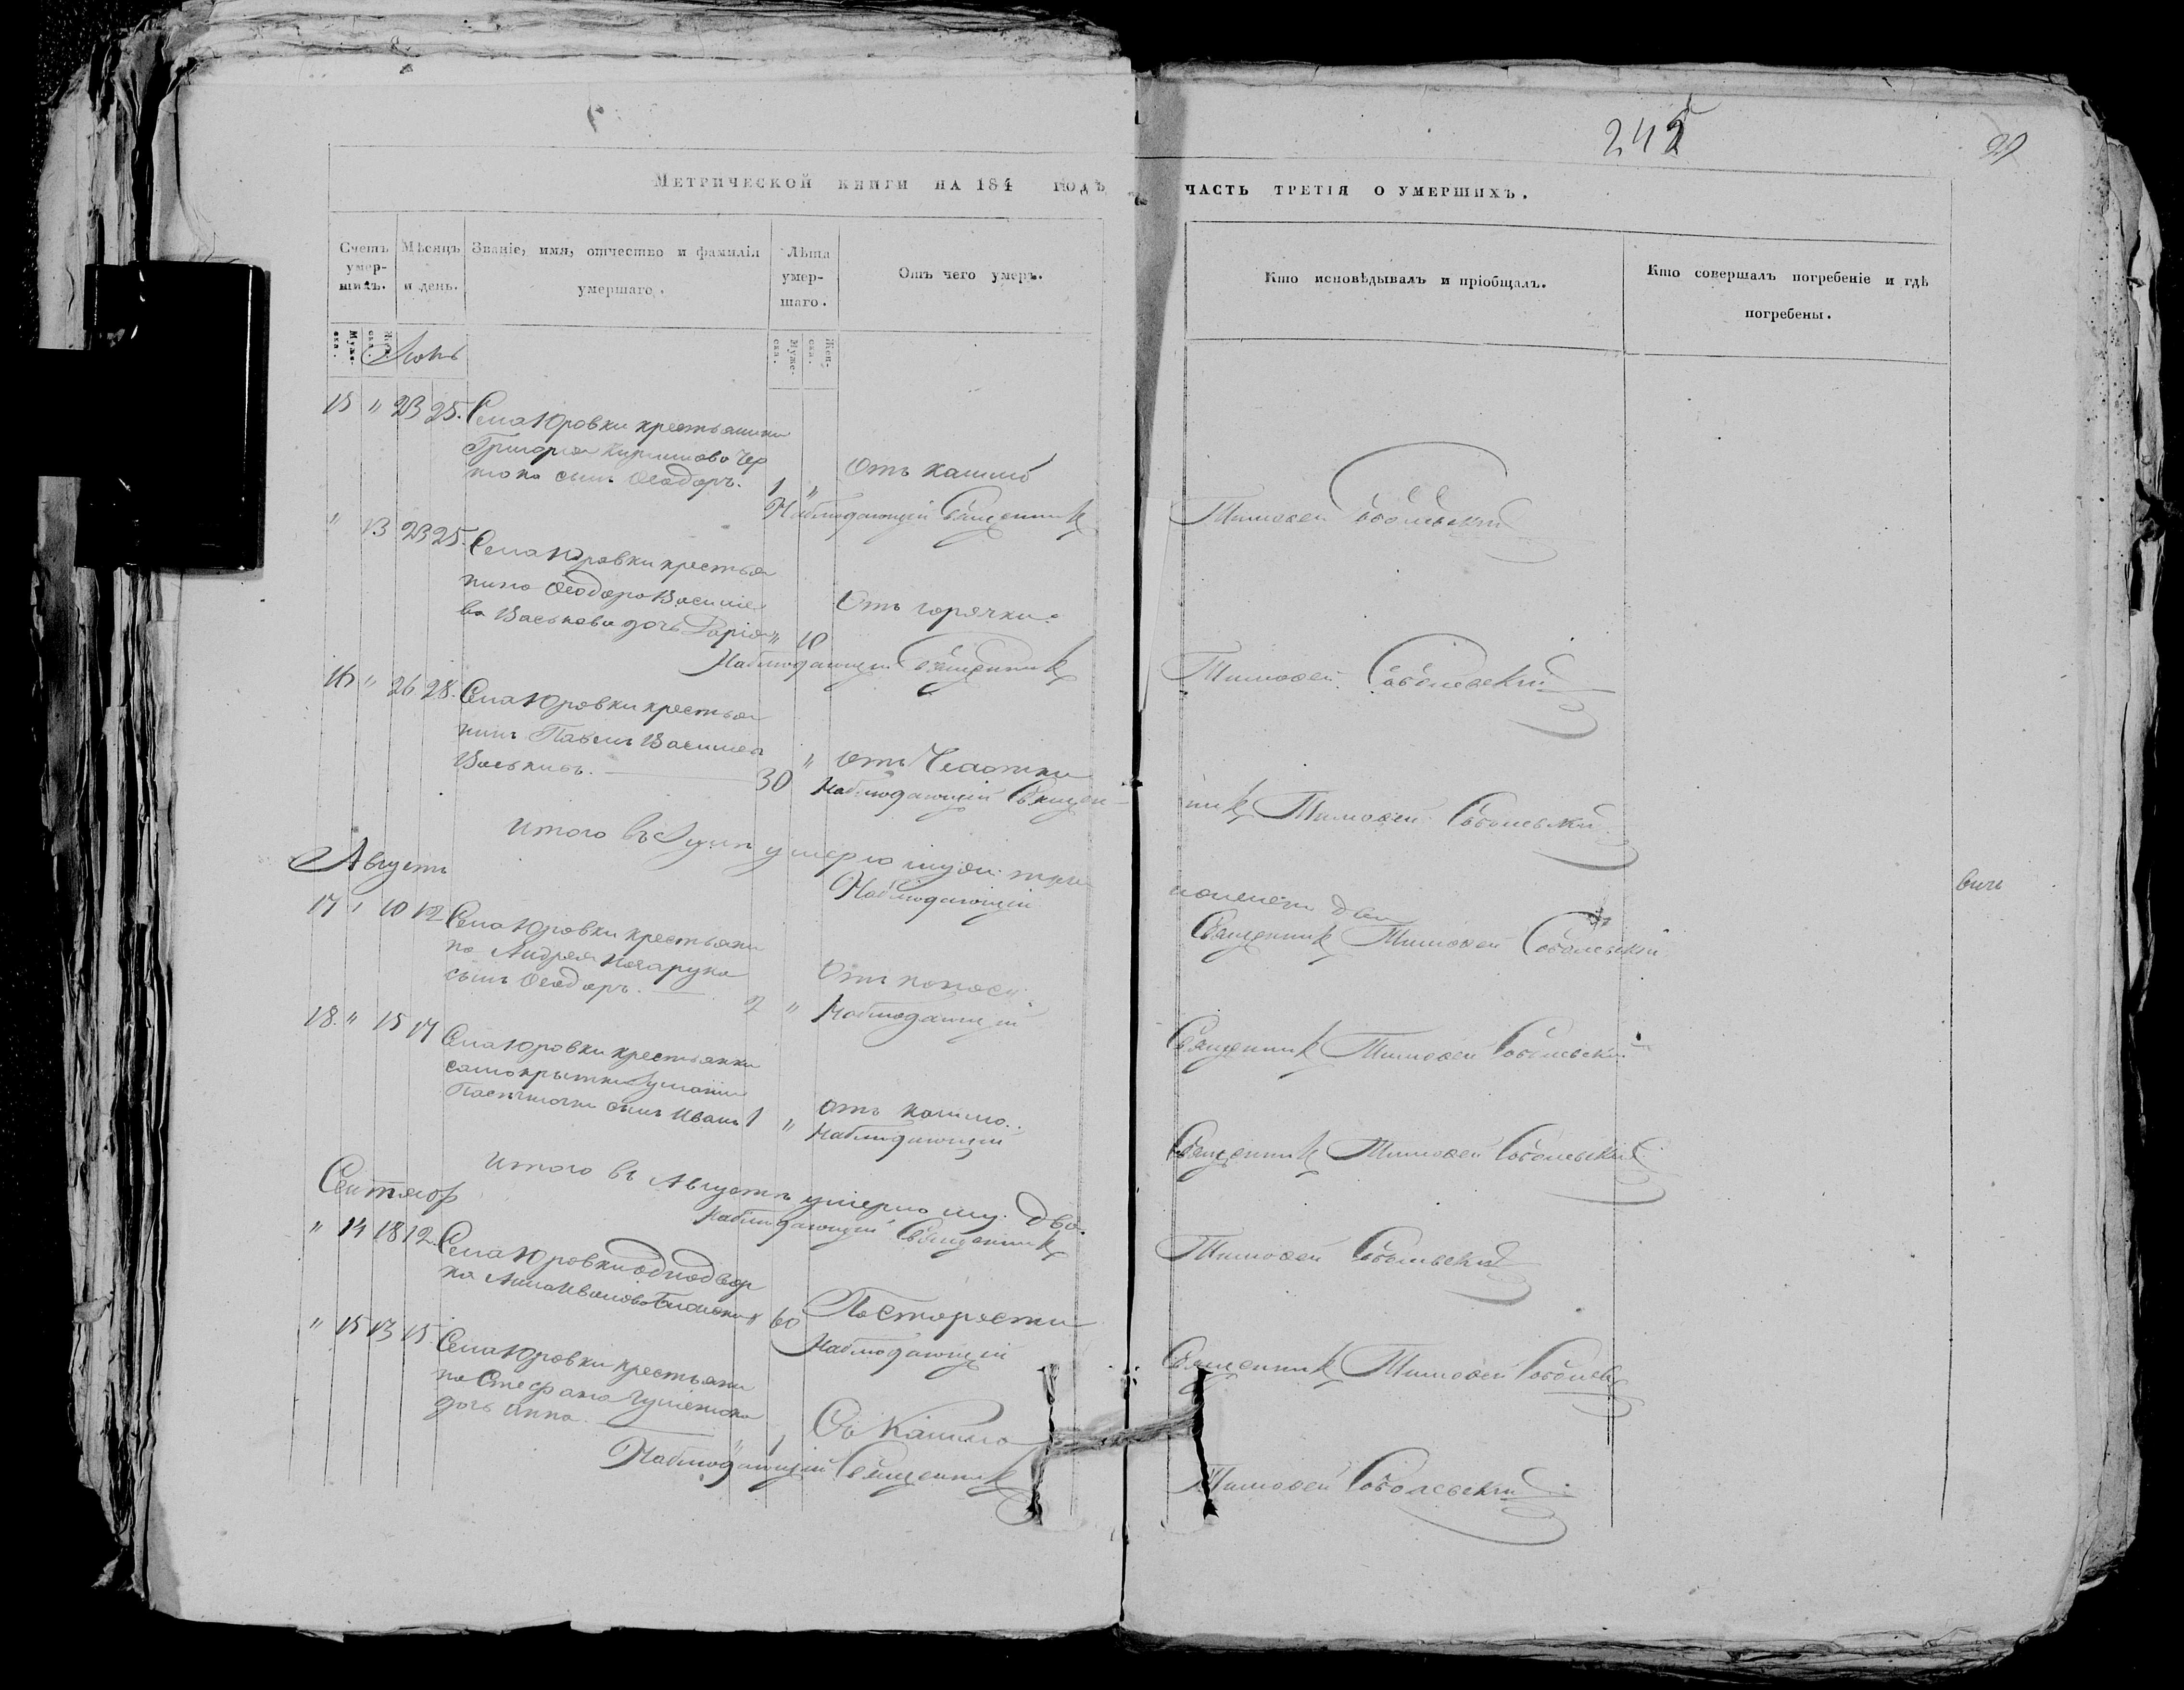 245
29
Метрической книги на 184 годъ
часть третія о умершихъ.
Счетъ умер-шихъ.
Мѣсяцъ и день.
Званіе, имя, отчество и фамилія умершаго.
Лѣта умер-шаго.
Отъ чего умеръ.
Кто исповѣдывалъ и пріобщалъ.
Кто совершалъ погребеніе и гдѣ погребены.
Муже-ска.
Жен-ска.
Муже-ска.
Жен-ска.
15 " 23 25. Села Юровки крестьянина
Григорія
сынъ Ѳеодоръ. 1 " Отъ кашлю
Наблюдающій Священникъ Тимоѳей Соболевскій
" 13 23 25. Села Юровки крестья
нина Ѳеодора Василіе
ва Васькова дочь Дарія " 10 Отъ горячки.
Наблюдающій Священникъ Тимоѳей Соболевскій
16 " 26 28. Села Юровки крестья
нинъ Павелъ Василіев
Васьковъ. 30 " отъ Чехотки
Наблюдающій Священ-
никъ Тимоѳей Соболевскій
Итого въ умерло
Августъ
Наблюдающій Священникъ Тимоѳей Соболевскій
17 " 10 12 Села Юровки крестьяни
на Андрея
сынъ Ѳеодоръ. 2 " Отъ поноса.
Наблюдающій Священникъ Тимоѳей Соболевскій
18. " 15 17 Села Юровки крестьянки
самокрытки
сынъ Иванъ 1 " отъ кашлю.
Наблюдающій Священникъ Тимоѳей Соболевскій
Итого въ Августѣ умерло муж. два.
Сентябр
Наблюдающій Священникъ Тимоѳей Соболевскій
" 14 18 12. Села Юровки однодвор
ка Анна Иванова " 60 По старости
Наблюдающій Священникъ Тимоѳей Соболев
" 15 13 15. Села Юровки крестьяни
на Стефана
дочь Анна. " 1 Отъ Кашлю
Наблюдающій Священникъ Тимоѳей Соболевскій